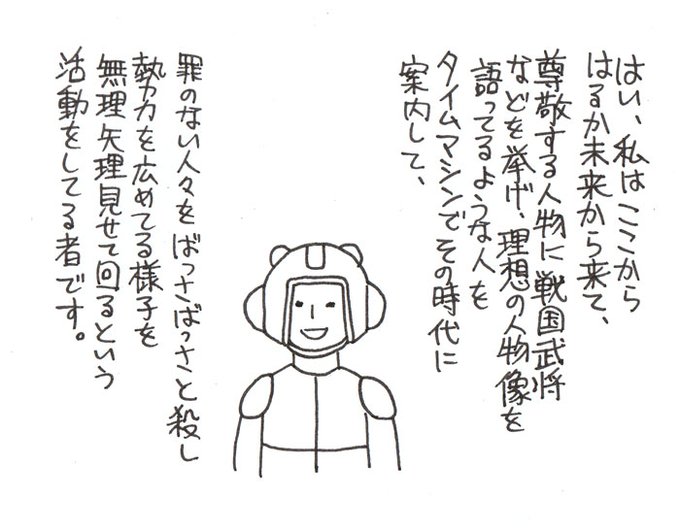 はい、私はここから
はるか未来から来て、
尊敬する人物に戦国武将
などを挙げ、理想の人物像を
語ってるような人を
タイムマシンでその時代に
案内して、
罪のない人々をばっさばっさと殺し
勢力を広めてる様子を
無理矢理見せて回るという
活動をしてる者です。